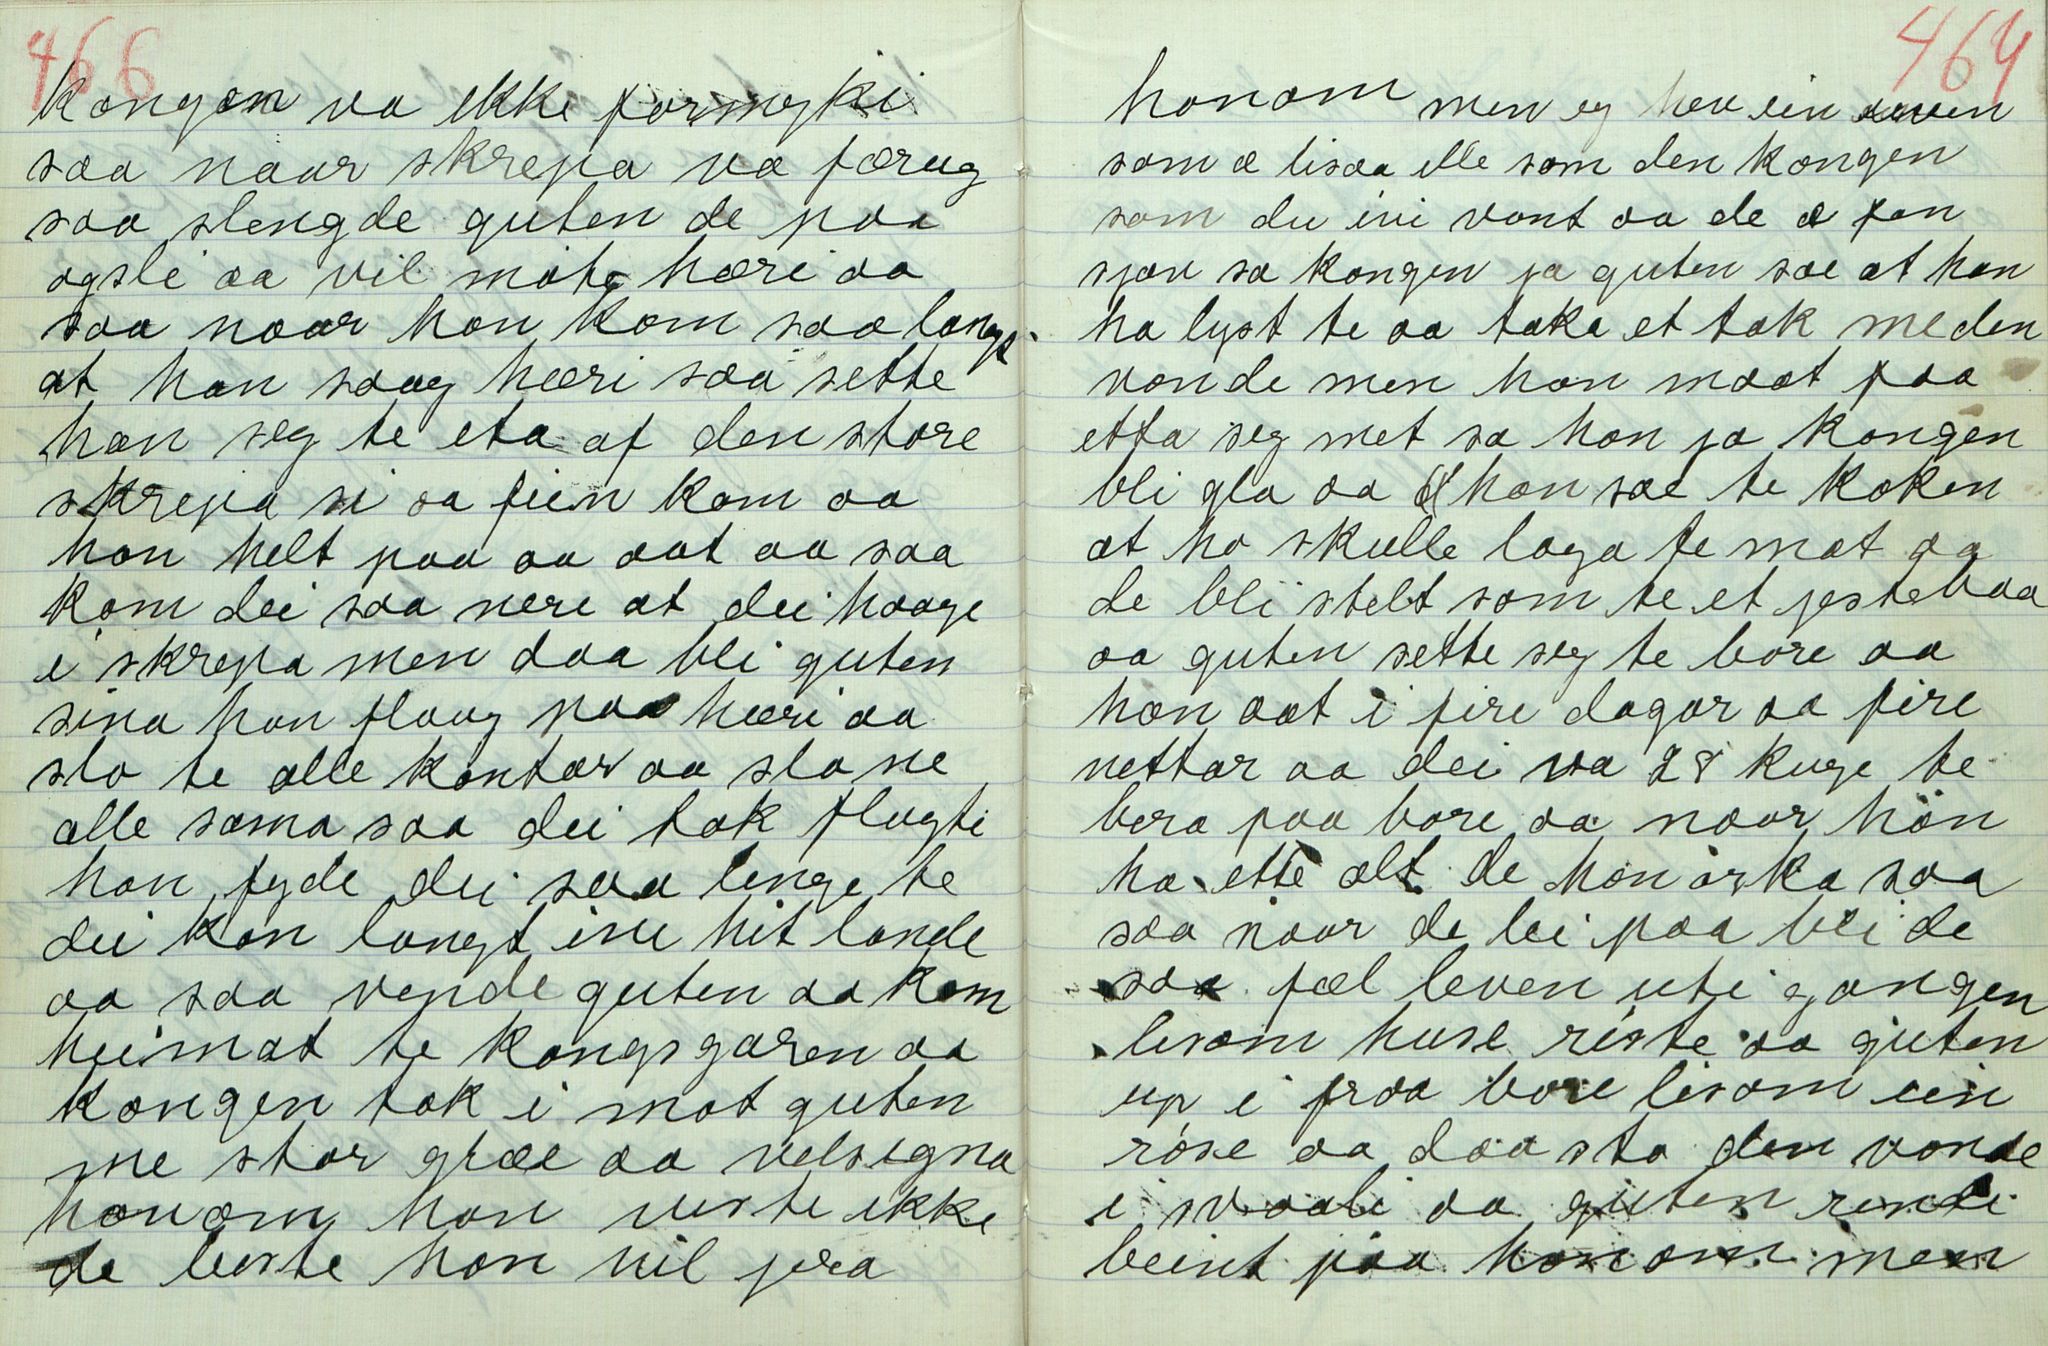 466
kongen va ikke formyki
saa naar skrepa va færug
saa slengde guten de paa
ogsli aa vil mote hæri aa
saa naar han kom saa langt
at han saag hæri saa sette
han seg te eta af den store
skrepa si sa fiin kom aa
han helt paa aa aat aa saa
kom dei saa nere at dei haage
i skrepa men daa blei guten
sina han flaug paa hæri aa
slo te alle kantar aa slo ne
alle sama saa dei tok flugti
han fyde dei saa lenge te
dei kon langt inn hit lande
aa saa vende guten aa kom
heimat te kongsgaren aa
kongen tok i mot guten
me stor græe aa velsegna
honom han viste ikke
de beste han vil jera
464
honom men eg hev ein
som æ lisaa ille som den kongen
som du ini vant aa de æ fan
sjøv sa kongen ja guten sae at han
ha lyst te aa taka et tak me den
vonde men han maat faa
etta seg met sa han ja kongen
bli gla aa han sae te koken
at ho skulle laga te mat aa
de bli stelt som te et jestebaa
aa guten sette seg te bore aa
han aat i fire dagar aa fire
nettar aa dei va 28 kuge te
bera paa bore aa naar han
ha ette alt de han orka saa
saa naar de lei paa blei de
saa fæl leven uti gangen
lisom huse riste aa guten
up i fraa bore lisom ein
rose aa daa sto den vonde
i svaali aa guten renti
beint paa honom men